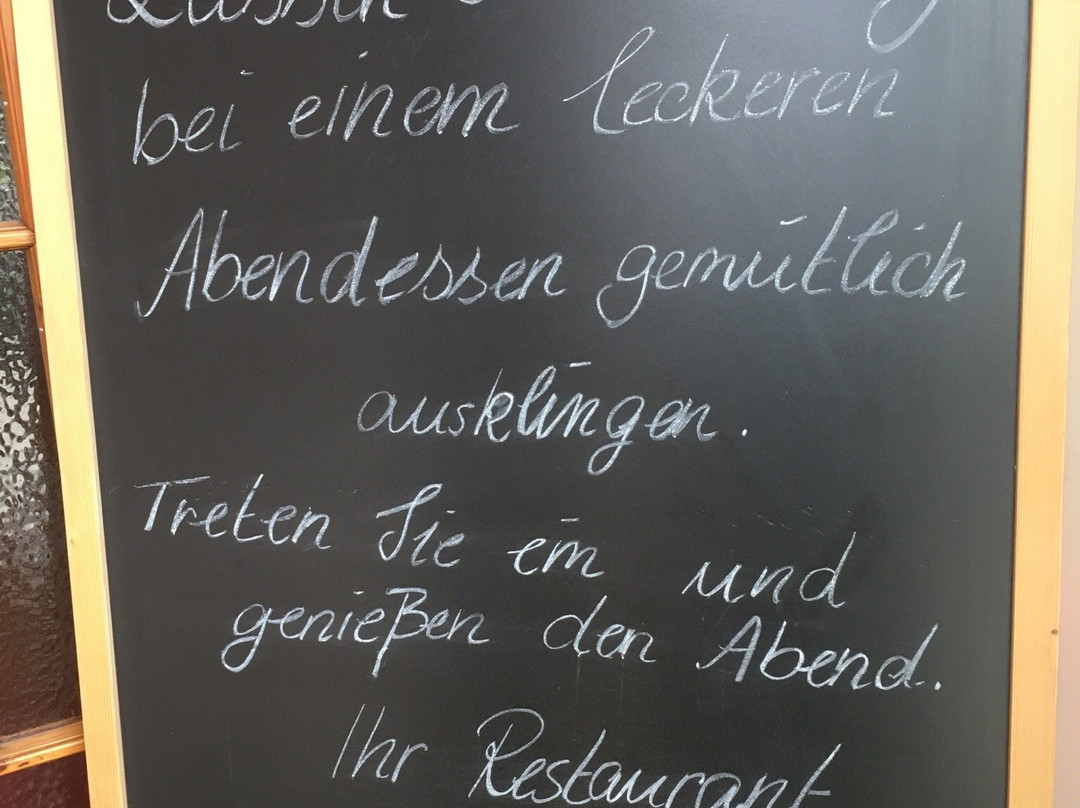 Lassen
bei einem leckeren
Abendessen gemütlich
ausklingen.
Treten Sie ein und
genießen den Abend.
Ihr Restaurant